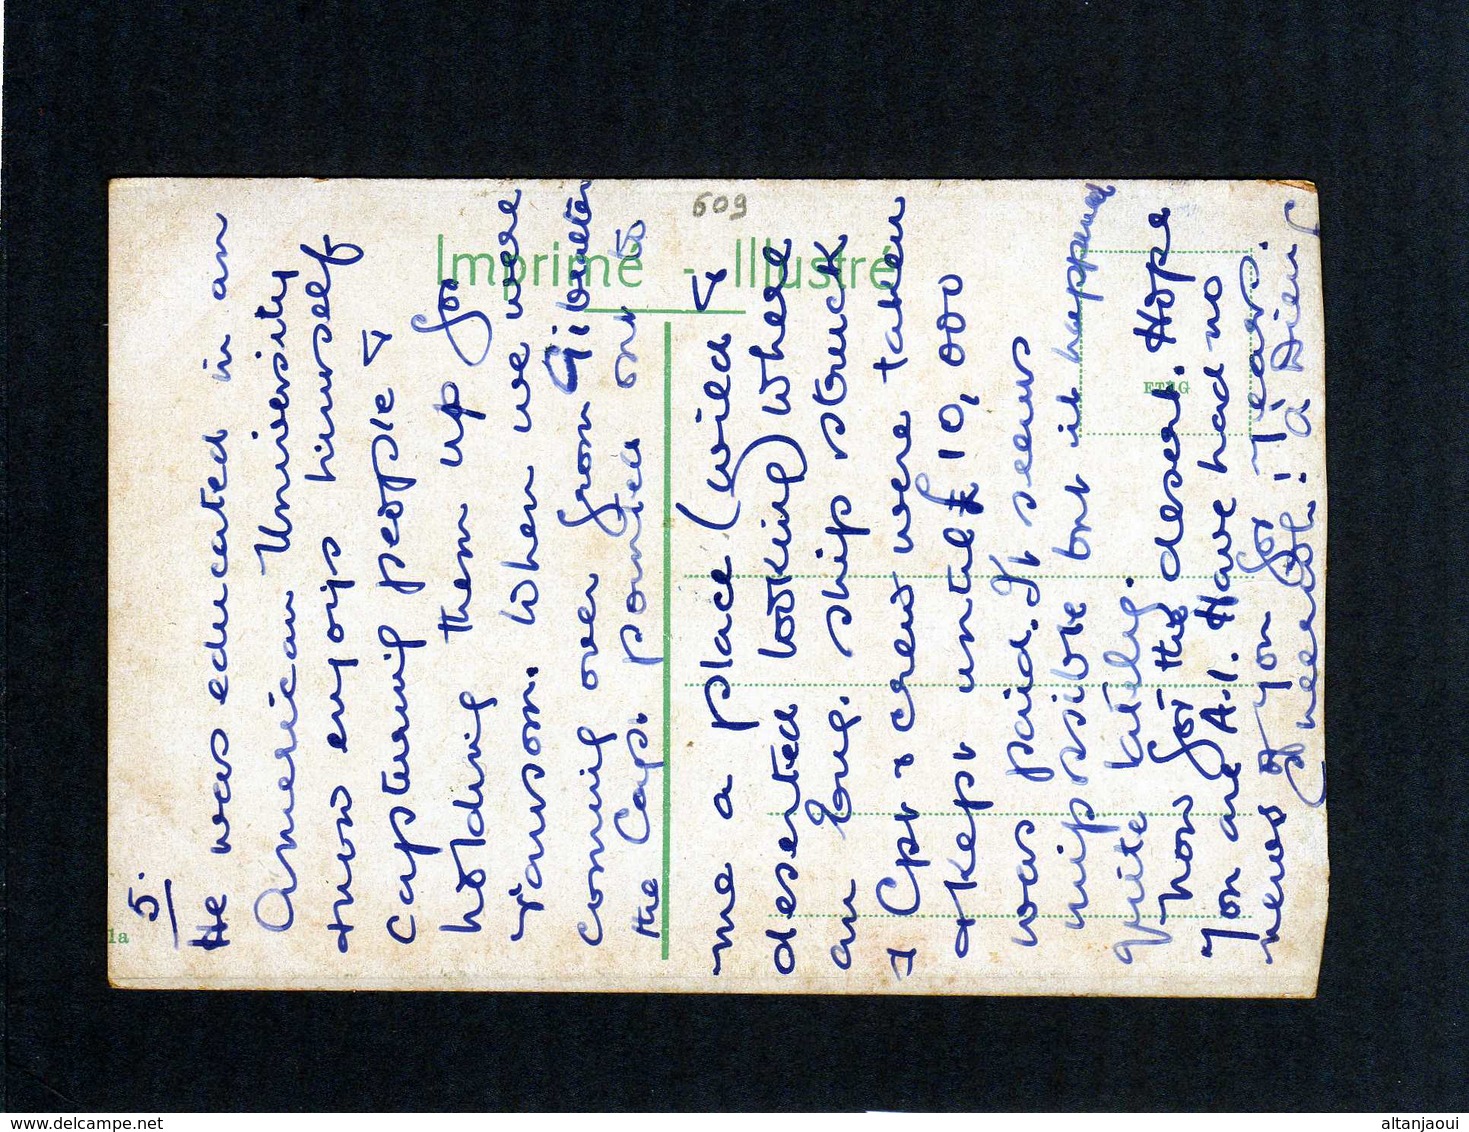 5.
He was educated in an
American University
+ now enjoys himself
capturing people &
holding them up for
ransom. When we were
coming over from Gibralter
the Capt. pointed out to
me a place (wild &
deserted looking) where
an Eng. ship struck
& Cpt & crew were taken
& kept until £ 10,000
was paid. It seems
impossible but it happened
quite lately.
Now for the desert. Hope
you are A.1. Have had no
news of you for years!
à Dieu
Imprimé - Illustré
609
1a
altanjaoui